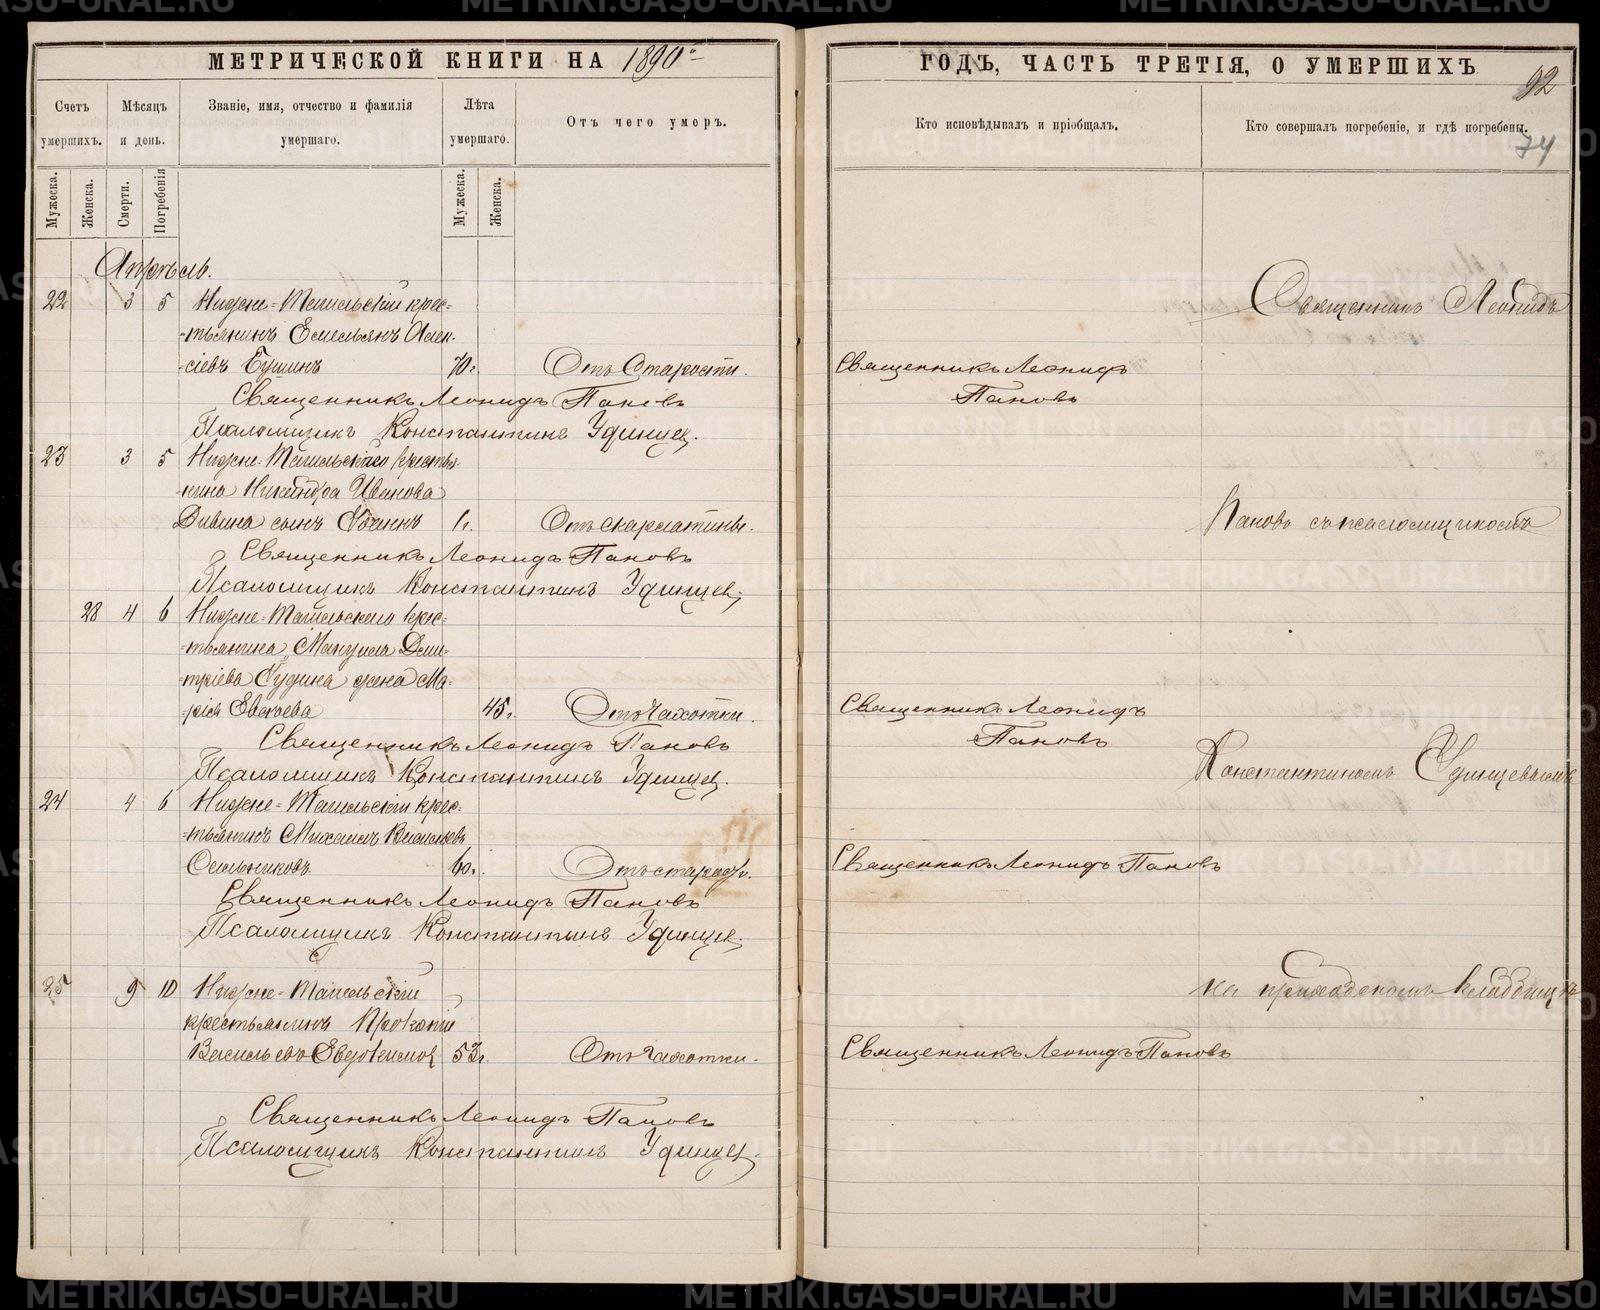 МЕТРИЧЕСКОЙ КНИГИ НА 1890-
Счетъ умершихъ.
Мѣсяцъ и день.
Званіе, имя, отчество и фамилія умершаго.
Лѣта умершаго.
Отъ чего умеръ.
Мужеска.
Женска.
Смерти.
Погребенія
Мужеска.
Женска.
Апрѣль.
22 3 5 Нижне-Тагильскій крес-
-тьянинъ Емельянъ Алек-
-сіевъ Гушинъ 70. Отъ Старости.
Священникъ Леонидъ Пановъ
Псаломщикъ Константинъ Удинцев.
23 3 5 Нижне-Тагильскаго крестья-
-нина Никандра Иванова
сынъ 1. Отъ скарлатины.
Священникъ Леонидъ Пановъ
Псаломщикъ Константинъ Удинцев.
28 4 6 Нижне-Тагильскаго крес-
-тьянина Мануила Дми-
-тріева жена Ма-
-рія 45. Отъ Чахотки.
Священникъ Леонидъ Пановъ
Псаломщикъ Константинъ Удинцев.
24 4 6 Нижне-Тагильскій крес-
-тьянинъ Михаилъ Васильевъ
60. Отъ старости.
Священникъ Леонидъ Пановъ
Псаломщикъ Константинъ Удинцев.
25 9 10 Нижне-Тагильскій
крестьянинъ Прокопій
Васильевъ Евдокимов 53. Отъ Чахотки.
Священникъ Леонидъ Пановъ
Псаломщикъ Константинъ Удинцев.
ГОДЪ, ЧАСТЬ ТРЕТІЯ, О УМЕРШИХЪ
92
Кто исповѣдывалъ и пріобщалъ.
Кто совершалъ погребеніе, и гдѣ погребены.
74
Священникъ Леонидъ
Священникъ Леонидъ
Пановъ
Пановъ съ псаломщикомъ
Священникъ Леонидъ
Пановъ
Константиномъ Удинцевымъ
Священникъ Леонидъ Пановъ
на приходскомъ кладбищѣ
Священникъ Леонидъ Пановъ
METRIKI.GASO-URAL.RU